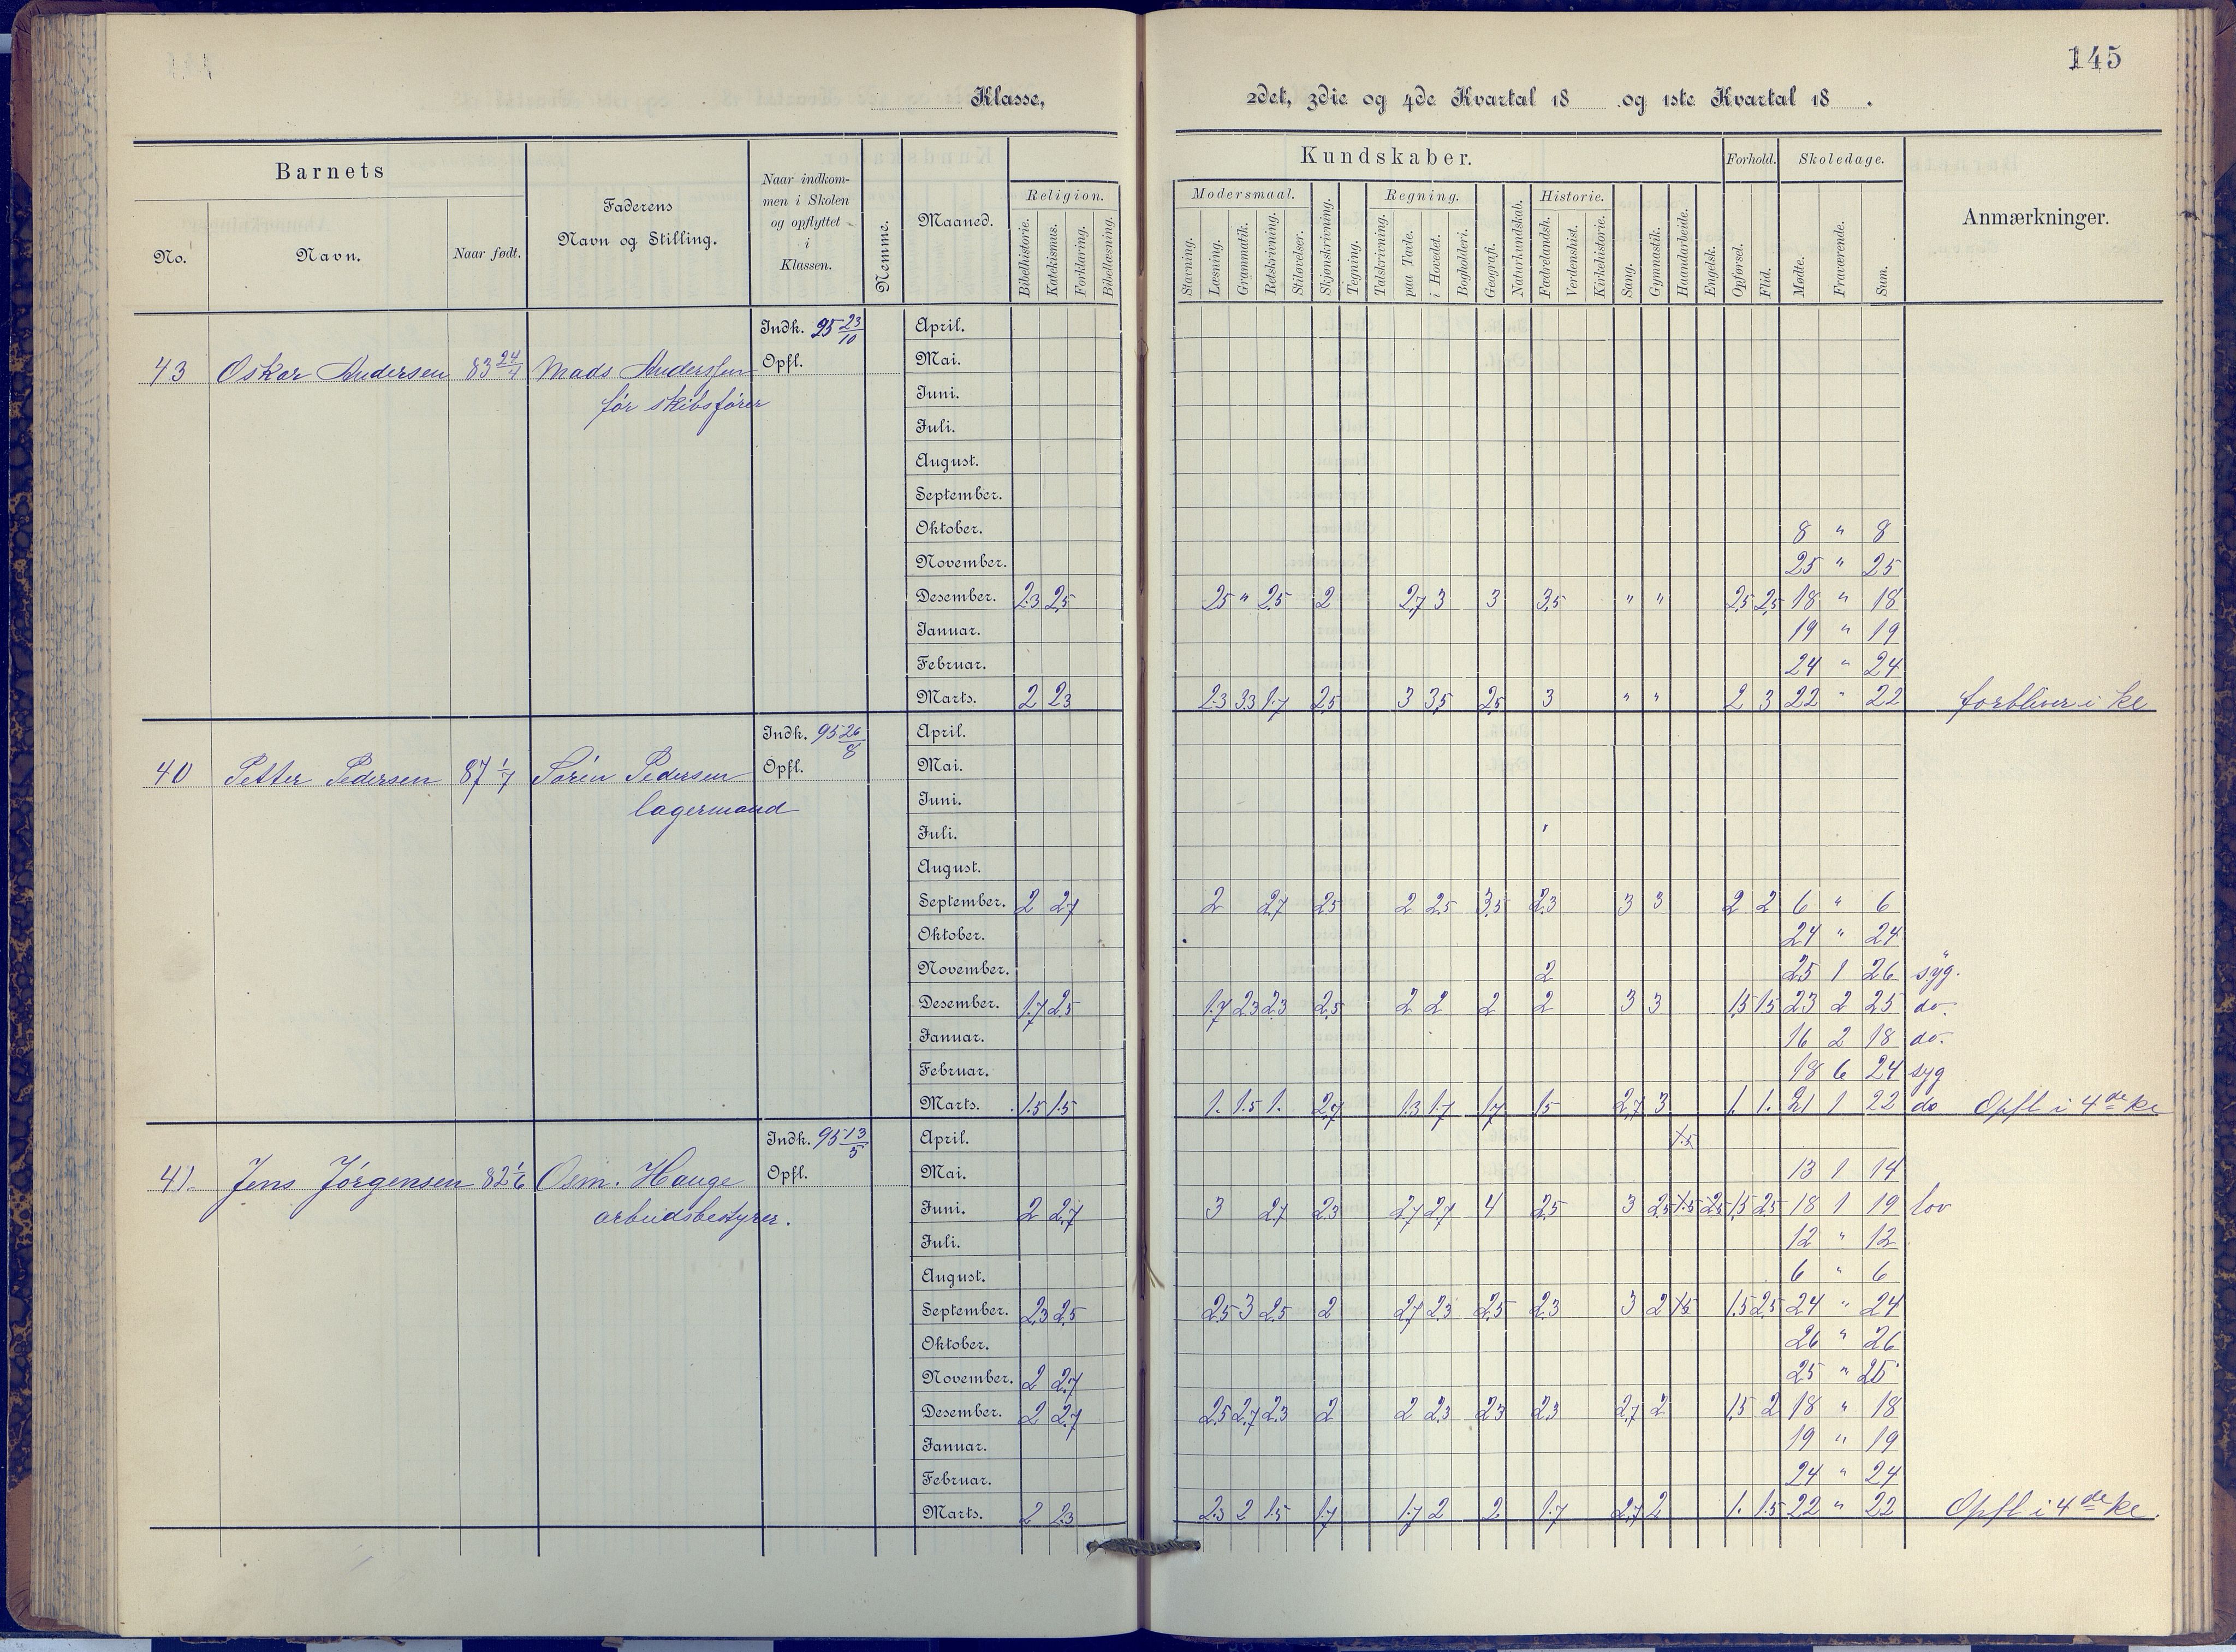 145
Klasse, 2det, 3die og 4de Kvartal 18 og 1ste Kvartal 18 .
Barnets
No.
Navn.
Naar født.
Faderens
Navn og Stilling.
Naar indkom-
men i Skolen
og opflyttet
i
Klassen.
Nemme.
Maaned.
Religion.
Bibelhistorie.
Katekismus.
Forklaring.
Bibellæsning.
Kundskaber.
Modersmaal.
Stavning.
Læsning.
Grammatik.
Retskrivning.
Stiløvelser.
Skjønskrivning.
Tegning.
Regning.
Talskrivning.
paa Tavle.
i Hovedet.
Bogholderi.
Geografi.
Naturkundskab.
Historie.
Fædrelandsh.
Verdenshist.
Kirkehistorie.
Sang.
Gymnastik.
Haandarbeide.
Engelsk.
Forhold.
Opførsel.
Flid.
Skoledage.
Mødte.
Fraværende.
Sum.
Anmærkninger.
Indk. 95 23/10 April.
43 Oskar Andersen 83 24/4 Mads Anderssen Opfl. Mai.
før skibsfører Juni.
Juli.
August.
September.
Oktober. 8 " 8
November. 25 " 25
Desember. 2.3 2.5 2.5 " 2.5 2 2.7 3 3 3.5 " " 2.5 2.5 18 " 18
Januar. 19 " 19
Februar. 24 " 24
Marts. 2 2.3 2.3 3.3 1.7 2.5 3 3.5 2.5 3 " " 2 3 22 " 22 forbliver i kl
Indk. 95 26/8 April.
40 Petter Pedersen 87 1/7 Sørin Pedersen Opfl. Mai.
lagermand Juni.
Juli.
August.
September. 2 2.7 2 2.7 2.5 2 2.5 3.5 2.3 3 3 2 2 6 " 6
Oktober. 24 " 24
November. 2 25 1 26 syg.
Desember. 1.7 2.5 1.7 2.3 2.3 2.5 2 2 2 2 3 3 1.5 1.5 23 2 25 do.
Januar. 16 2 18 do.
Februar. 18 6 24 syg
Marts. 1.5 1.5 1. 1.5 1. 2.7 1.3 1.7 1.7 1.5 2.7 3 1. 1. 21 1 22 do Opfl i 4de kl
Indk. 95 13/5 April.
41. Jens Jörgensen 82 1/6 Osm. Hauge Opfl. Mai. 13 1 14
arbeidsbestyrer. Juni. 2 2.7 3 2.7 2.3 2.7 2.7 4 2.5 3 2.5 1.5 2.5 1.5 2.5 18 1 19 lov
Juli. 12 " 12
August. 6 " 6
September. 2.3 2.5 2.5 3 2.5 2 2.7 2.3 2.5 2.3 3 2 1.5 1.5 2.5 24 " 24
Oktober. 26 " 26
November. 2 2.7 25 " 25
Desember. 2 2.7 2.5 2.7 2.3 2 2 2.3 2.3 2.3 2.7 2 1.5 2 18 " 18
Januar. 19 " 19
Februar. 24 " 24
Marts. 2 2.3 2.3 2 1.5 1.7 1.7 2 2 1.7 2.7 2 1. 1.5 22 " 22 Opfl i 4de kl.